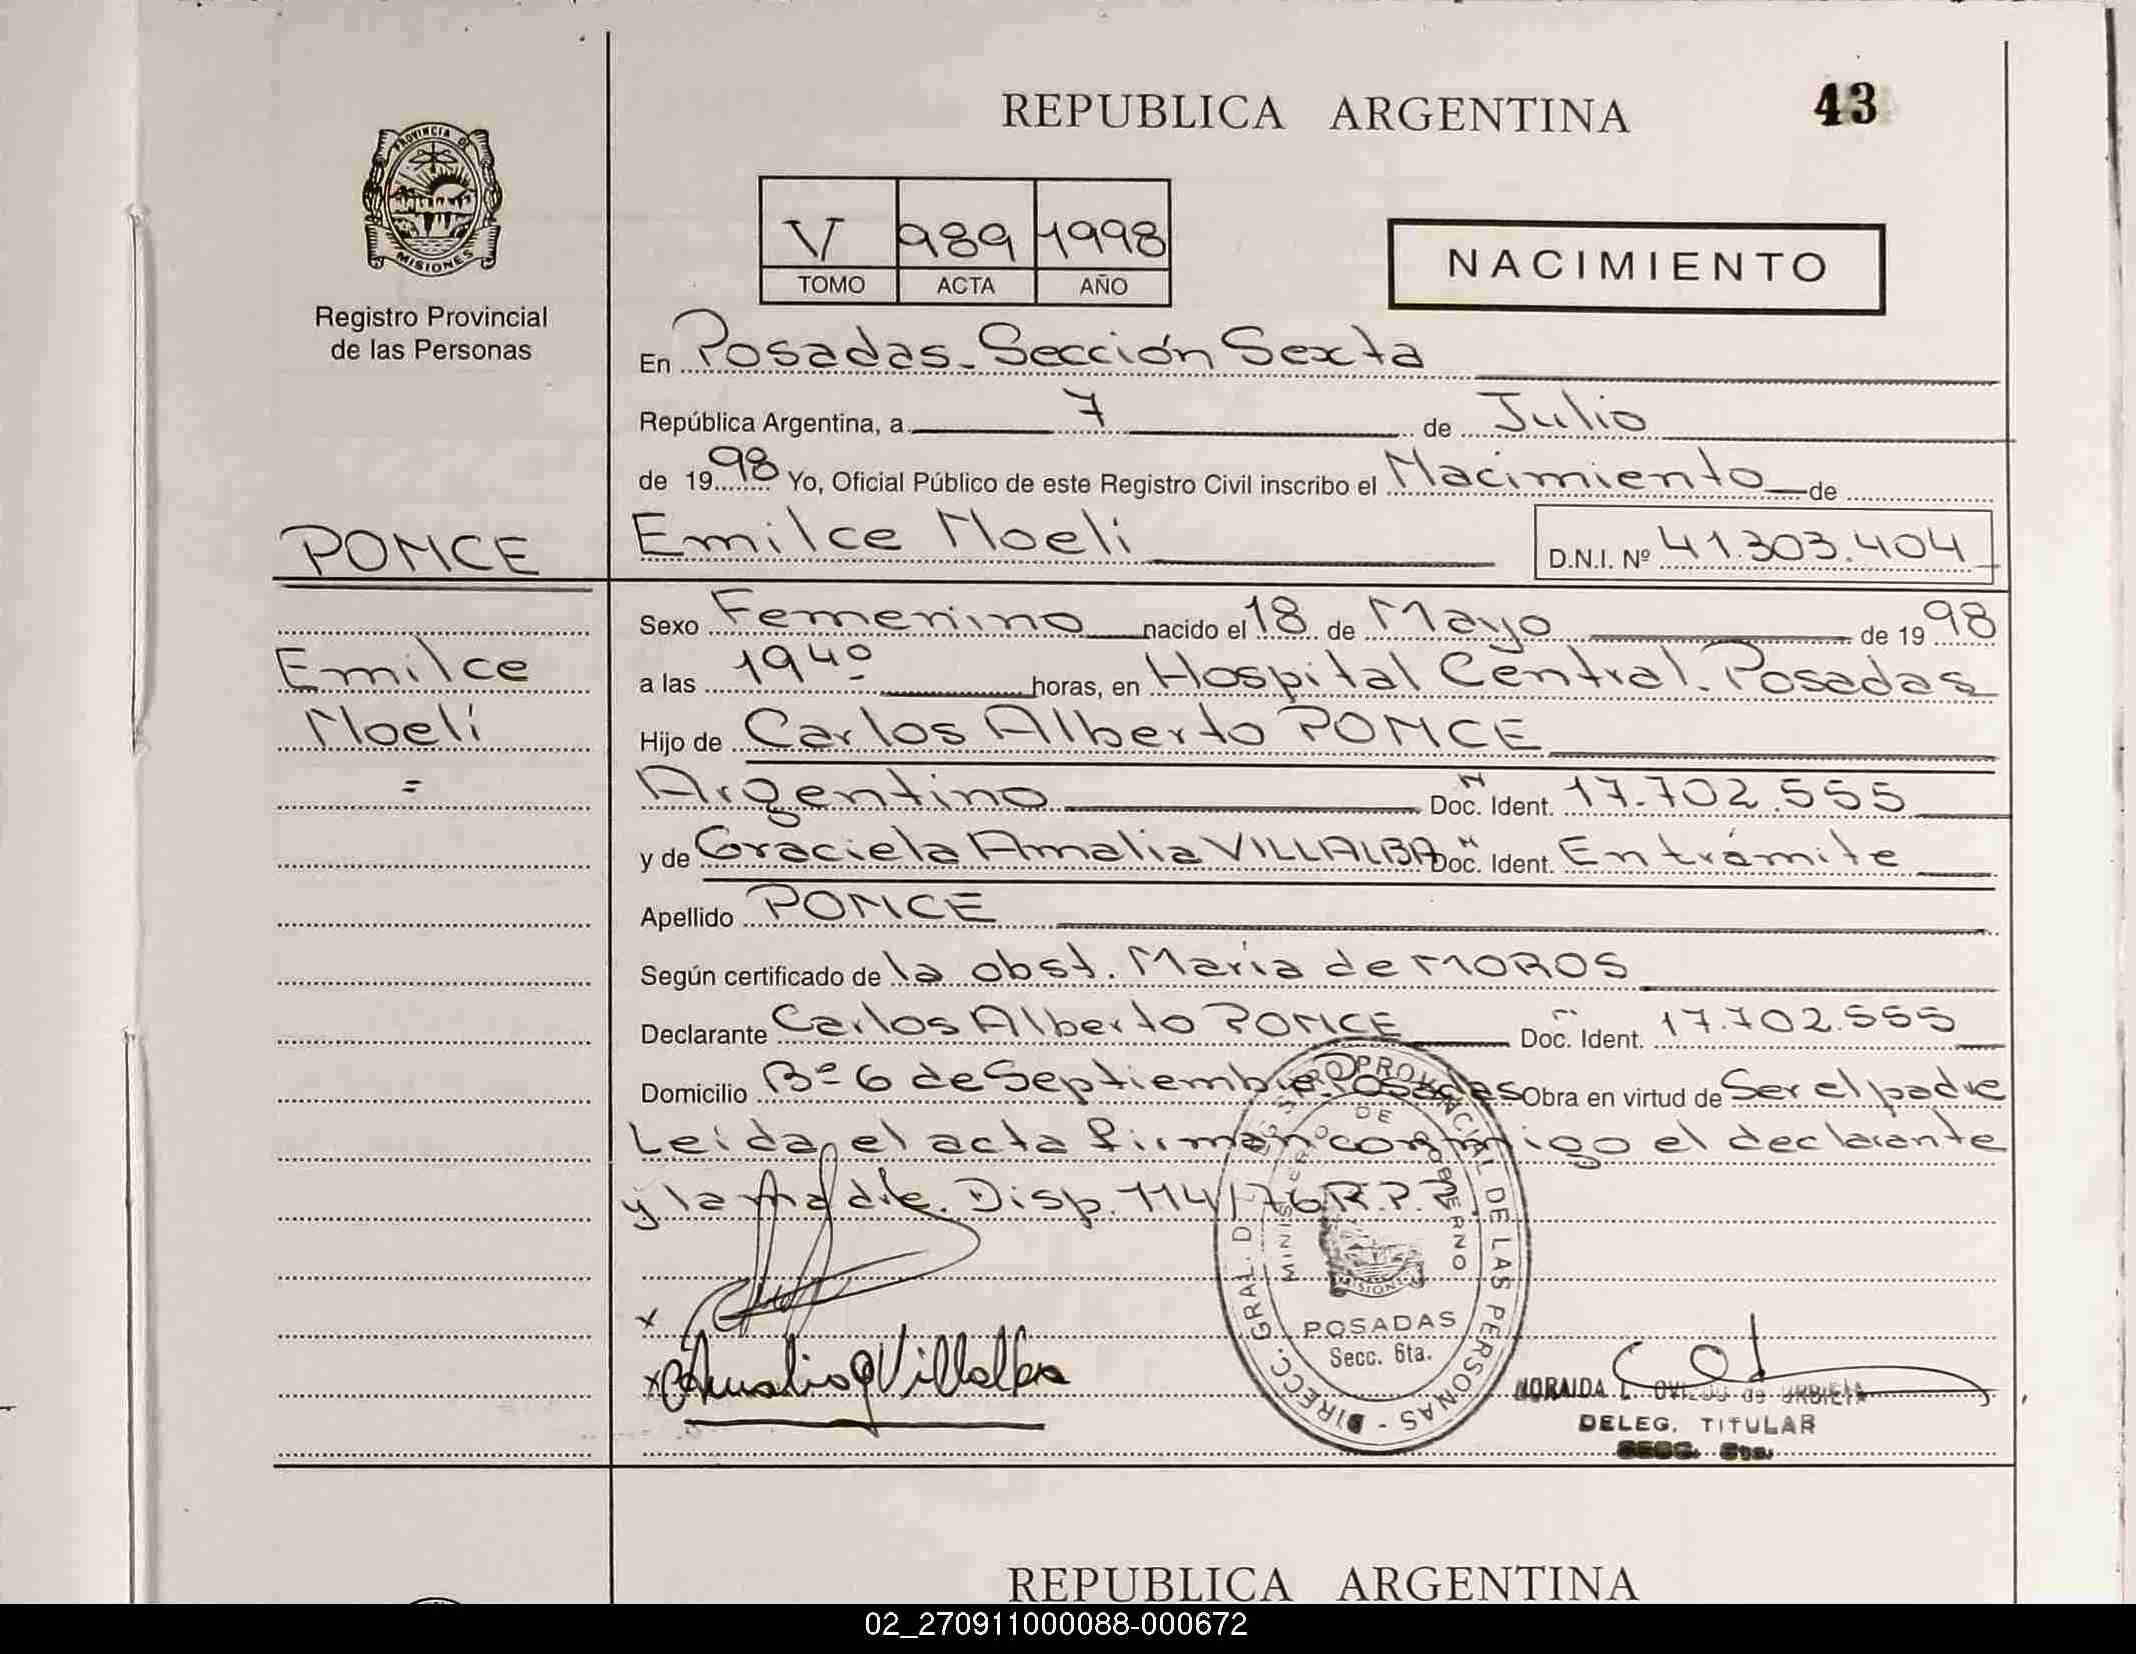 43
REPUBLICA ARGENTINA
PROVINCIA DE
MISIONES
Registro Provincial
de las Personas
V 989 1998
TOMO ACTA AÑO
NACIMIENTO
En Posadas - Sección Sexta
República Argentina, a 7 de Julio
de 1998 Yo, Oficial Público de este Registro Civil inscribo el Nacimiento de
PONCE
Emilce Noeli
D.N.I. Nº 41.303.404
Emilce
Noelí
=
Sexo Femenino nacido el 18 de Mayo de 1998
a las 19 40 horas, en Hospital Central - Posadas
Hijo de Carlos Alberto PONCE
Argentino Doc. Ident. 17.702.555
y de Graciela Amalia VILLALBA Doc. Ident. En trámite
Apellido PONCE
Según certificado de la obst. María de MOROS
Declarante Carlos Alberto PONCE Doc. Ident. 17.702.555
Domicilio Bº 6 de Septiembre Posadas Obra en virtud de Ser el padre
Leída el acta firman conmigo el declarante
y la madre. Disp. 114/76 R.P.P.
x
x Amalia Villalba
DIRECC. GRAL. DEL REGISTRO PROVINCIAL DE LAS PERSONAS -
MINISTERIO DE GOBIERNO
MISIONES
POSADAS
Secc. 6ta.
NORAIDA L. OVIEDO de URBIETA
DELEG. TITULAR
SECC. 6ta.
REPUBLICA ARGENTINA
02_270911000088-000672